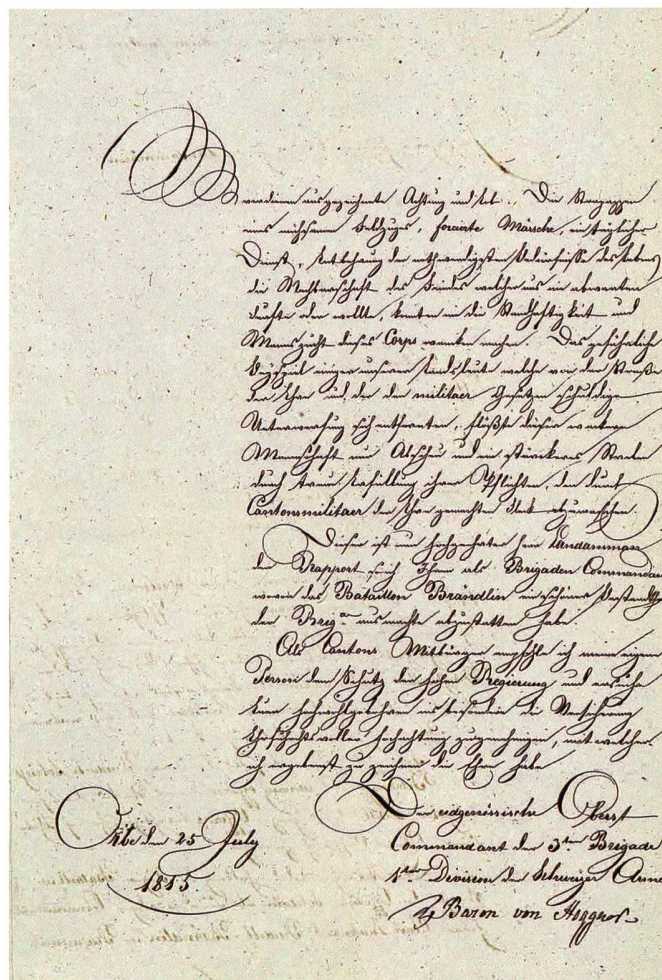 verdienen ausgezeichnete Achtung und Lob. Die Strapazzen
eines mühsamen Feldzuges, forcirte Märsche, ein täglicher
Dienst, Entbehrung der nothwendigsten Bedürfnisse des Lebens
die Nachbarschaft des Feindes welcher uns
durfte oder wollte, die Standhaftigkeit und
Mannszucht dieses Corps wanken machen. Das gefährliche
Beyspiel einiger unserer Landsleute welche von der Strasse
der Ehre und der den militaer Gesetzen schuldigen
Unterwerfung sich entfernten, flösst dieser wackeren
Mannschaft nur Abscheu und ein stärckeres Streben
durch treue Erfüllung ihrer Pflichten, den dem
Cantonsmilitaer der gemachten Fleck abzuwaschen.
Dieses ist mein Herr Landamman
der Rapport so ich Ihnen als Brigaden Commandant
wovon das Bataillon Brändlin ein schöner Bestandtheil
der Brig. ausmachte abzustatten habe.
Als Cantons Mitbürger empfehle ich meine eigene
Person dem Schutz der hohen Regierung und ersuche
Eure Hochwohlgebohren die Versicherung
Ehrfurchtsvoller Hochachtung zu genehmigen, mit welcher
ich ergebenst zu zeichnen die Ehre habe
Orbe den 25 July
1815.
Der eidgenössische Oberst
Commandant der 3ten Brigade
1ter Division der Schweizer Armee
Baron von Hoggner